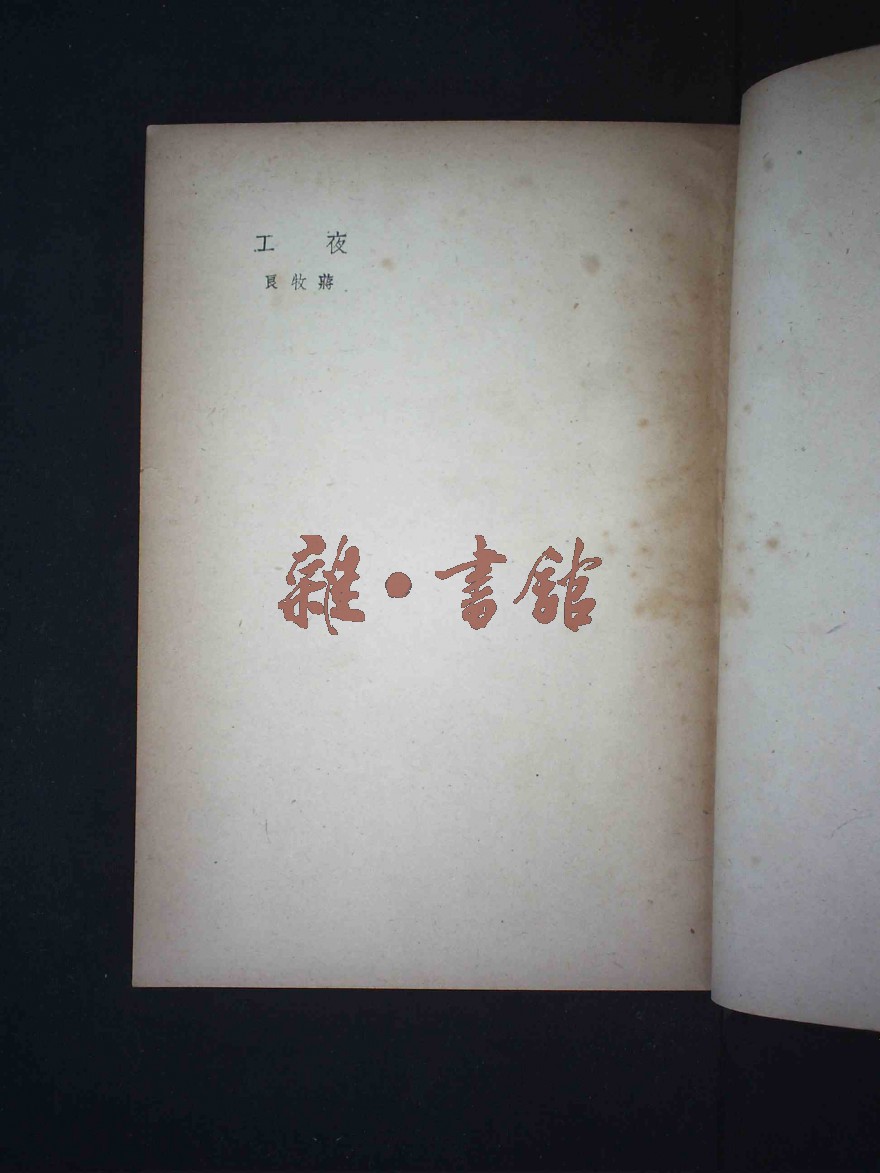 夜工
蔣牧良
雜·書館